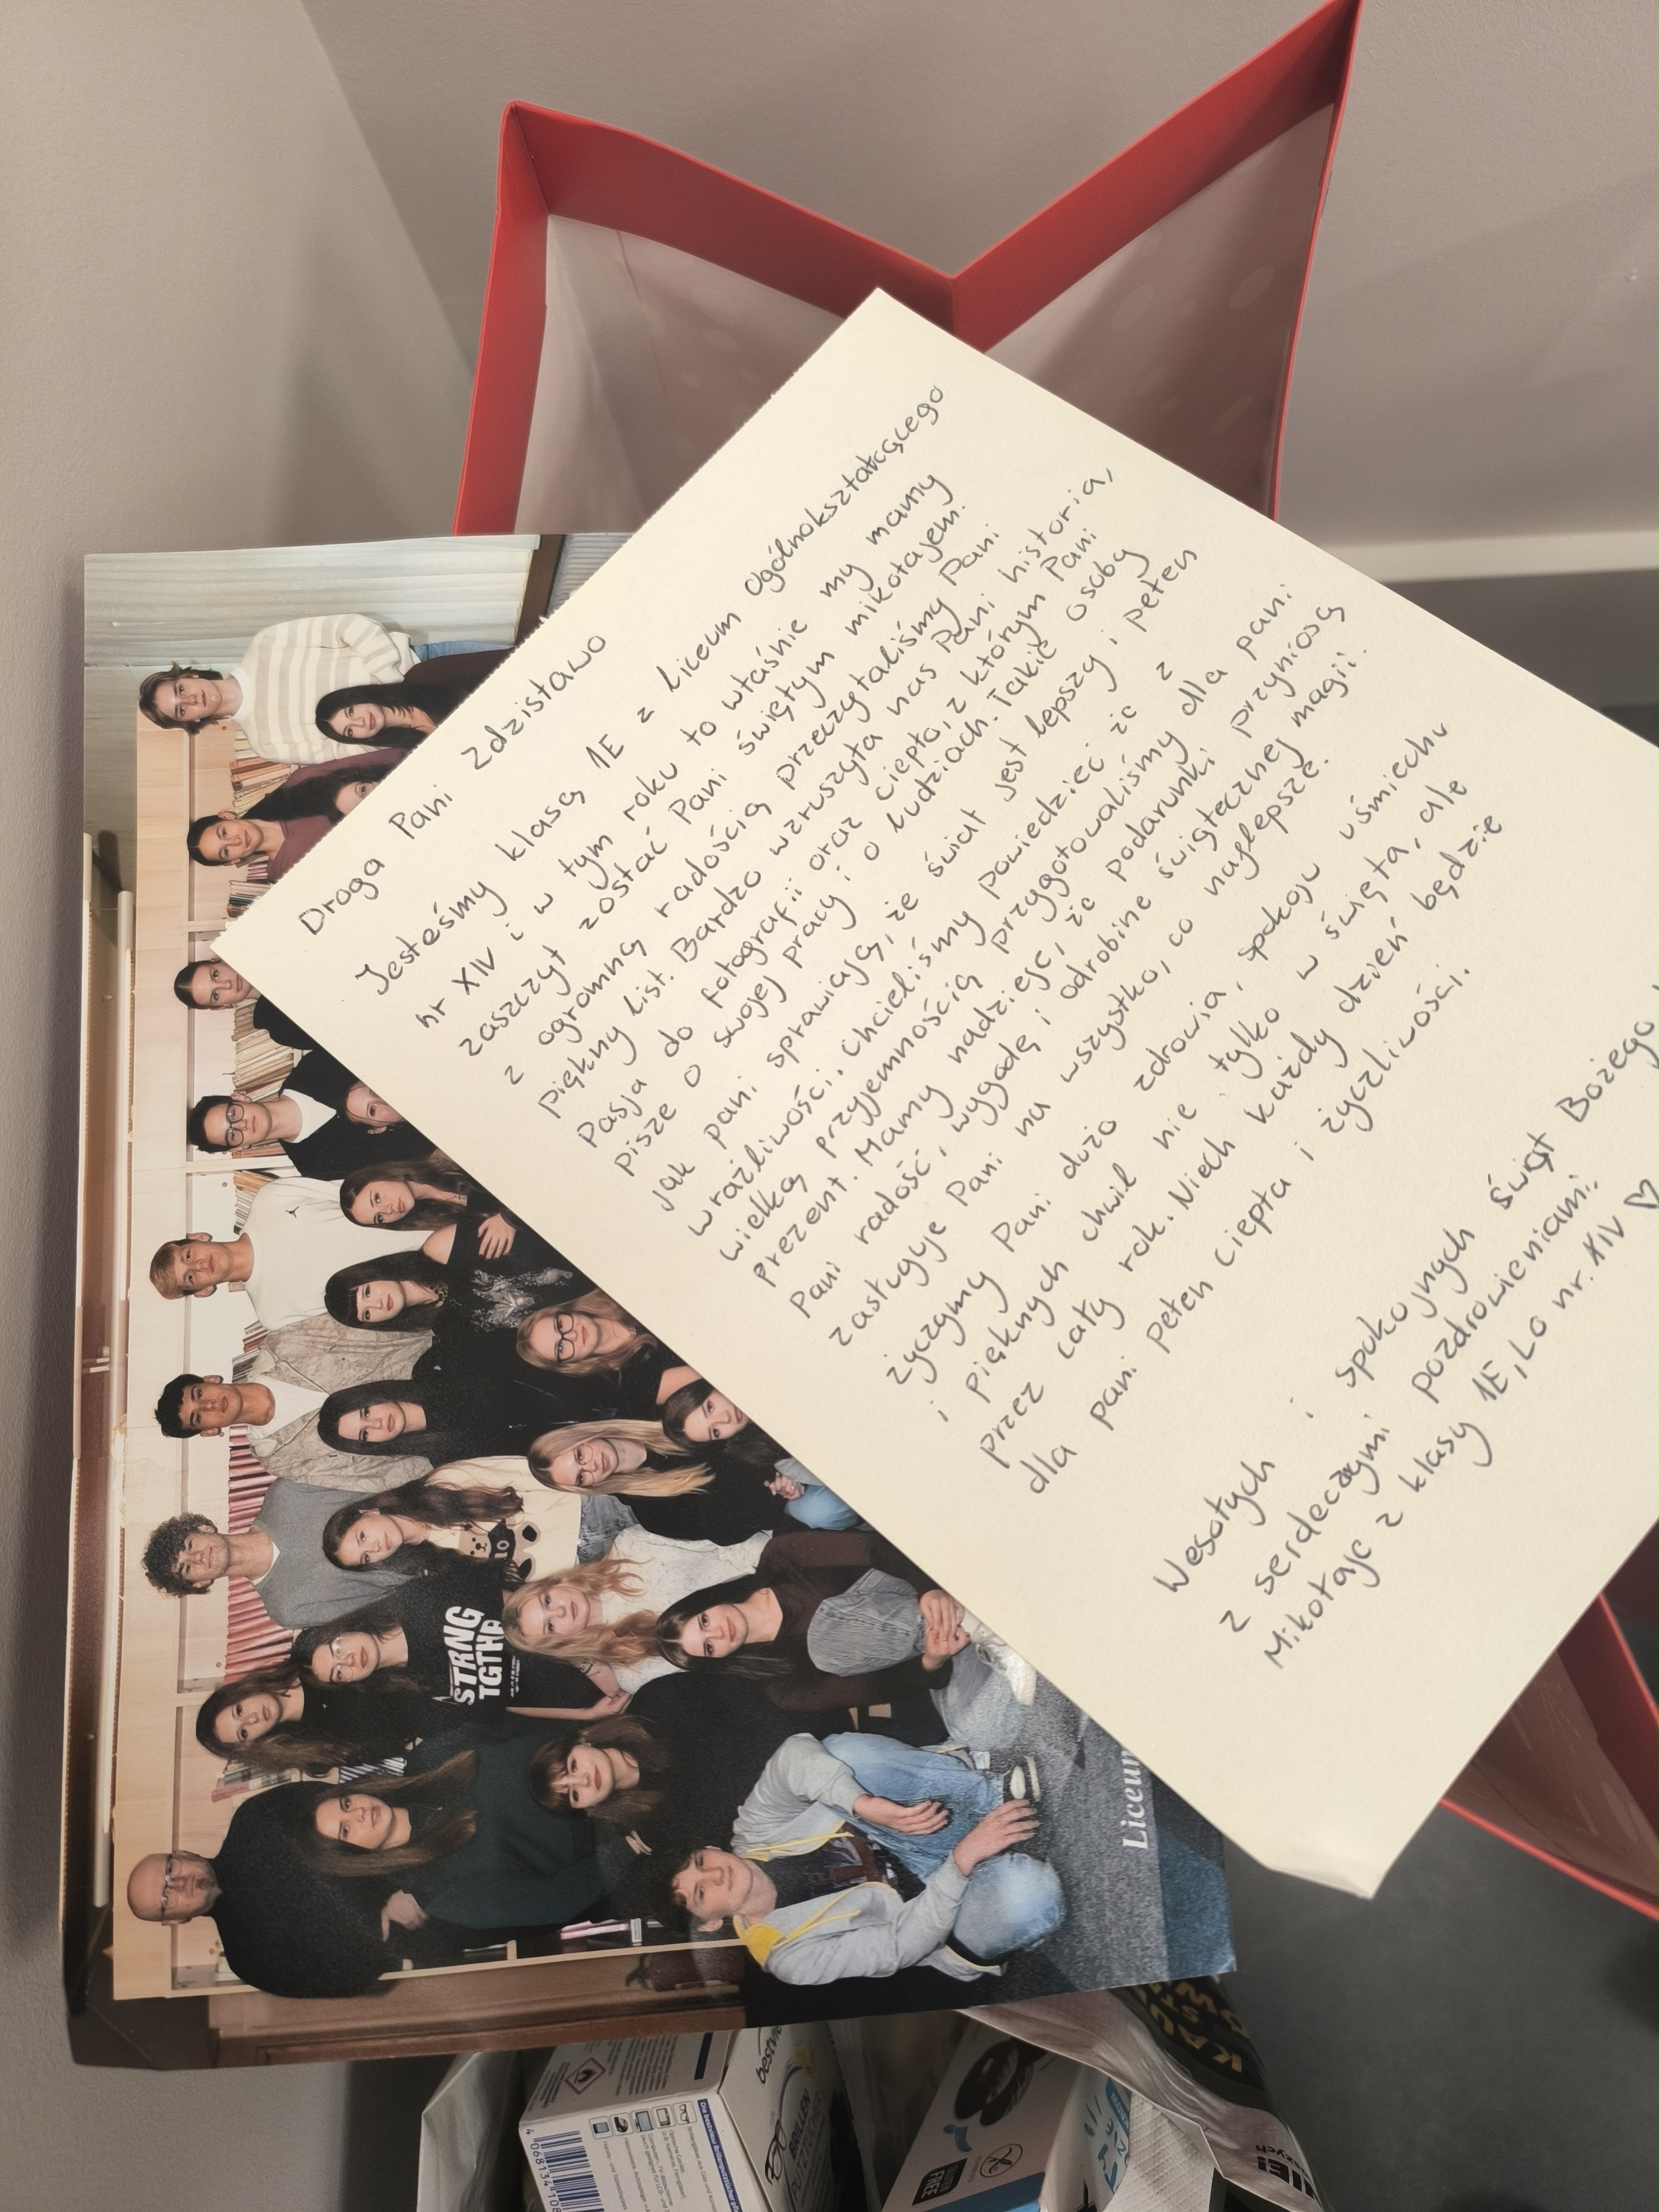 Droga Pani Zdzisławo
Jesteśmy klasą 1E z Liceum Ogólnokształcącego
nr XIV i w tym roku to właśnie my mamy
zaszczyt zostać Pani świętym mikołajem.
z ogromną radością przeczytaliśmy Pani
piękny list. Bardzo wzruszyła nas Pani historia,
pasja do fotografii oraz ciepło, z którym Pani
pisze o swojej pracy i o ludziach. Takie osoby
jak pani sprawiają, że świat jest lepszy i pełen
wrażliwości. chcieliśmy powiedzieć że z
wielką przyjemnością przygotowaliśmy dla pani
prezent. Mamy nadzieje, że podarunki przyniosą
Pani radość, wygodę i odrobine świątecznej magii.
zasługuje Pani na wszystko, co najlepsze.
życzymy Pani dużo zdrowia, spokoju uśmiechu
i pięknych chwil nie tylko w święta, ale
przez cały rok. Niech każdy dzień będzie
dla pani pełen ciepła i życzliwości.
Wesołych i spokojnych świąt Bożego
z serdecznymi pozdrowieniami
Mikołaje z klasy 1E, LO nr. XIV ♡
STRNG
TGTHR
Liceum
bestview
BRILLEN
PUTZTÜCHER
4 068134 108
FREE